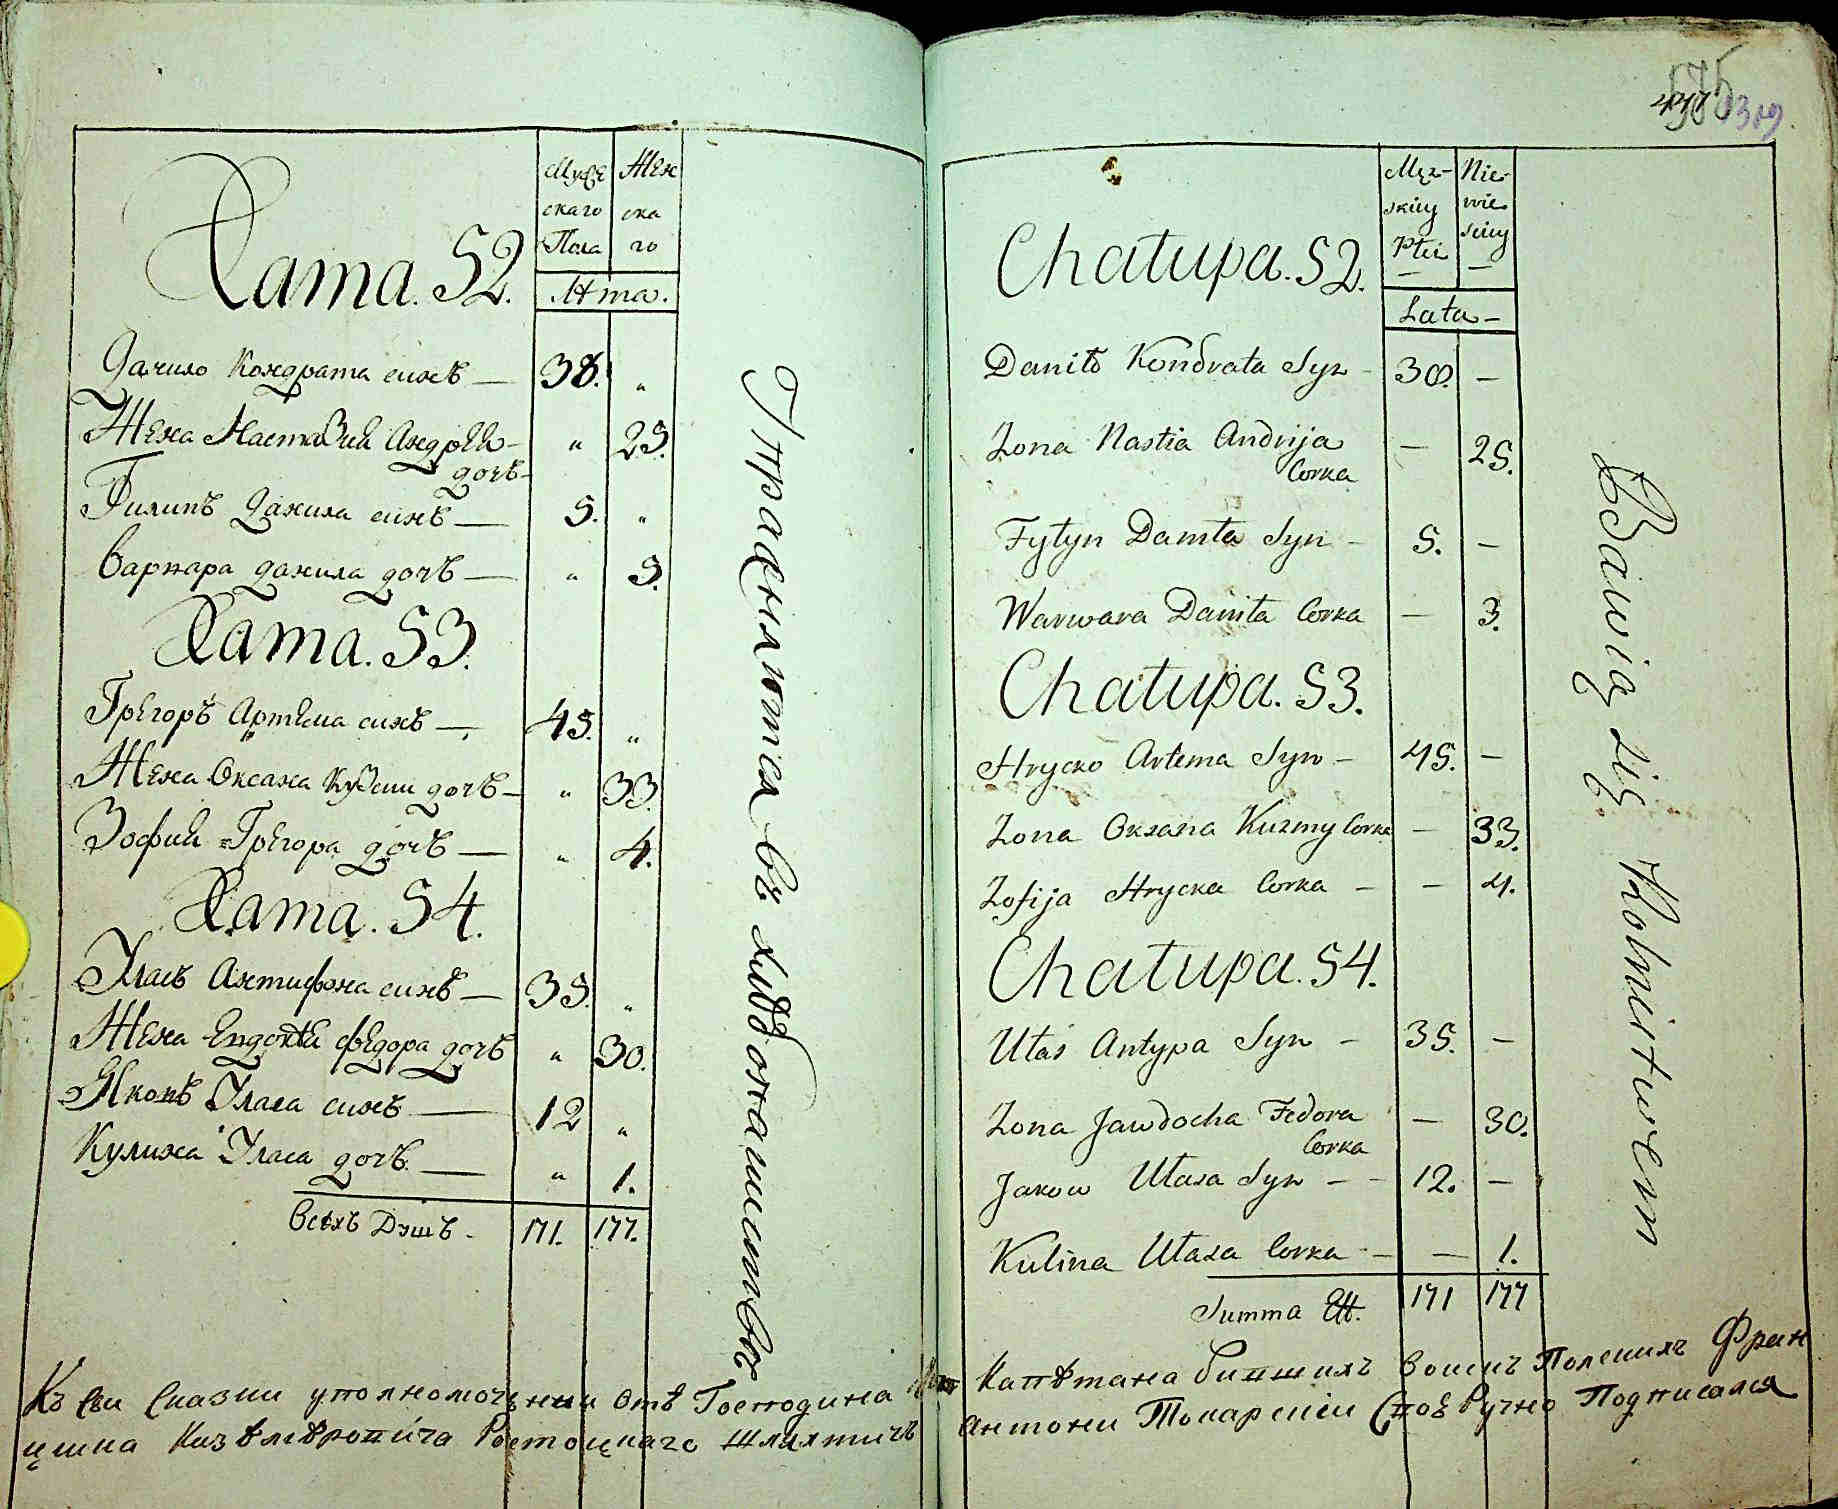 Мужескаго Пола
Женскаго
Лѣта.
Хата. 52.
Данило Кондрата синъ — 38. „
Жена Настазия Андрея дочъ — „ 25.
Филипъ Данила синъ — 5. „
Варвара данила дочъ — „ 3.
Хата. 53.
Грегоръ Артема синъ — 45. „
Жена Оксана Кузми дочъ — „ 33.
Зофия Грегора дочъ — „ 4.
Хата. 54.
Уласъ Антифона синъ — 35. „
Жена Евдокия Федора дочъ „ 30.
Яковъ Уласа синъ — 12 „
Кулина Уласа дочъ. — „ 1.
Всѣхъ Душъ - 171. 177.
Упражняются въ хлѣбопашествѣ
319
Męz-
skiey
Płci
Nie-
wie
sciey
Lata -
Chałupa. 52.
Daniło Kondrata Syn - 38. —
Zona Nastia Andrija Corka — 25.
Fyłyp Daniła Syn - 5. —
Warwara Daniła Corka — 3.
Chałupa. 53.
Hrycko Artema Syn - 45. —
Zona Oxana Kuzmy Corka — 33.
Zofija Hrycka Corka - — 4.
Chałupa. 54.
Ułas Antypa Syn - 35. —
Zona Jawdocha Fedora Corka — 30.
Jakow Ułasa Syn - - 12. —
Kulina Ułasa Corka - — 1.
Summa 171 177
Bawią się Rolnictwem
Къ сеи Сказки уполномочении отъ Господина Капѣтана бившихъ воискъ Полскихъ Фран
цишка Казѣмѣровича Ростоцкаго Шляхтичъ Антони Токарскіи Своеручно Подписался